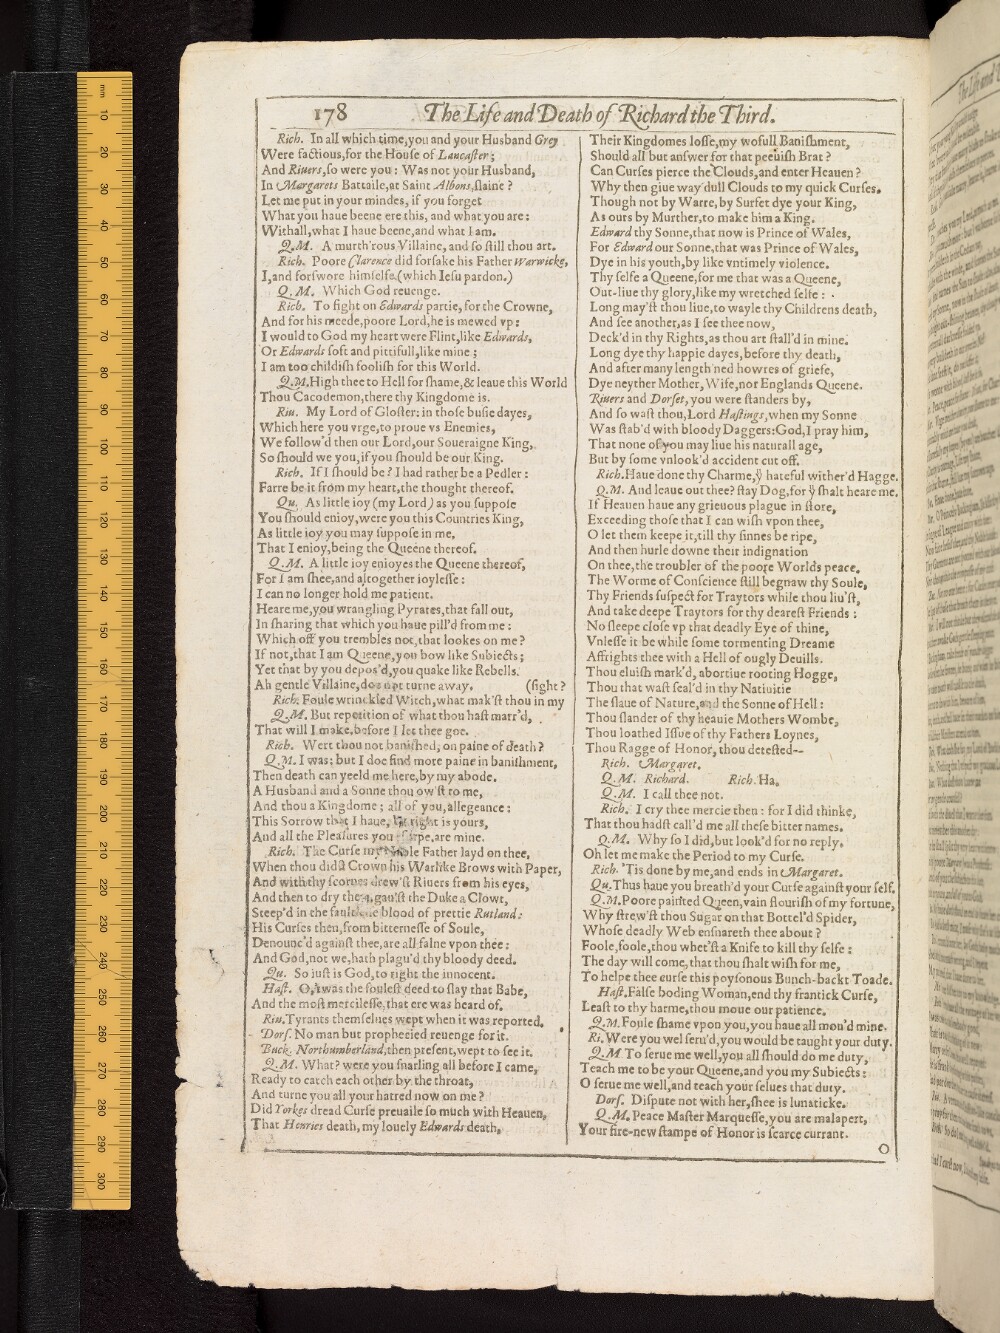 178 The Life and Death of Richard the Third.
Rich. In all which time,you and your Husband Grey
Were factious,for the House of Lancaster;
And Riuers,so were you: Was not your Husband,
In Margarets Battaile,at Saint Albons,slaine?
Let me put in your mindes, if you forget
What you haue beene ere this, and what you are:
Withall,what I haue beene,and what I am.
Q.M. A murth'rous Villaine, and so still thou art.
Rich. Poore Clarence did forsake his Father Warwicke,
I,and forswore himselfe.(which Iesu pardon.)
Q.M. Which God reuenge.
Rich. To fight on Edwards partie,for the Crowne,
And for his meede,poore Lord,he is mewed vp:
I would to God my heart were Flint,like Edwards,
Or Edwards soft and pittifull,like mine;
I am too childish foolish for this World.
Q.M.High thee to Hell for shame,& leaue this World
Thou Cacodemon,there thy Kingdome is.
Riu. My Lord of Gloster: in those busie dayes,
Which here you vrge,to proue vs Enemies,
We follow'd then our Lord,our Soueraigne King,
So should we you,if you should be our King.
Rich. If I should be? I had rather be a Pedler:
Farre be it from my heart,the thought thereof.
Qu. As little ioy (my Lord) as you suppose
You should enioy,were you this Countries King,
As little ioy you may suppose in me,
That I enioy,being the Queene thereof.
Q.M. A little ioy enioyes the Queene thereof,
For I am shee,and altogether ioylesse:
I can no longer hold me patient.
Heare me,you wrangling Pyrates,that fall out,
In sharing that which you haue pill'd from me:
Which off you trembles not,that lookes on me?
If not,that I am Queene,you bow like Subiects;
Yet that by you depos'd,you quake like Rebells.
Ah gentle Villaine,doe not turne away. (sight?
Rich. Foule wrinckled Witch,what mak'st thou in my
Q.M. But repetition of what thou hast marr'd,
That will I make,before I let thee goe.
Rich. Wert thou not banished,on paine of death?
Q.M. I was: but I doe find more paine in banishment,
Then death can yeeld me here,by my abode.
A Husband and a Sonne thou ow'st to me,
And thou a Kingdome; all of you,allegeance:
This Sorrow that I haue, by right is yours,
And all the Pleasures you vsurpe,are mine.
Rich. The Curse my Noble Father layd on thee,
When thou didst Crown his Warlike Brows with Paper,
And with thy scornes drew'st Riuers from his eyes,
And then to dry them,gau'st the Duke a Clowt,
Steep'd in the faultlesse blood of prettie Rutland:
His Curses then,from bitternesse of Soule,
Denounc'd against thee,are all falne vpon thee:
And God,not we,hath plagu'd thy bloody deed.
Qu. So iust is God,to right the innocent.
Hast. O,'twas the foulest deed to slay that Babe,
And the most mercilesse,that ere was heard of.
Riu.Tyrants themselues wept when it was reported.
Dors. No man but prophecied reuenge for it.
Buck. Northumberland,then present,wept to see it.
Q.M. What? were you snarling all before I came,
Ready to catch each other by the throat,
And turne you all your hatred now on me?
Did Yorkes dread Curse preuaile so much with Heauen,
That Henries death,my louely Edwards death,
Their Kingdomes losse,my wofull Banishment,
Should all but answer for that peeuish Brat?
Can Curses pierce the Clouds,and enter Heauen?
Why then giue way dull Clouds to my quick Curses.
Though not by Warre,by Surfet dye your King,
As ours by Murther,to make him a King.
Edward thy Sonne,that now is Prince of Wales,
For Edward our Sonne,that was Prince of Wales,
Dye in his youth,by like vntimely violence.
Thy selfe a Queene,for me that was a Queene,
Out-liue thy glory,like my wretched selfe:
Long may'st thou liue,to wayle thy Childrens death,
And see another,as I see thee now,
Deck'd in thy Rights,as thou art stall'd in mine.
Long dye thy happie dayes,before thy death,
And after many length'ned howres of griefe,
Dye neyther Mother,Wife,nor Englands Queene.
Riuers and Dorset,you were standers by,
And so wast thou,Lord Hastings,when my Sonne
Was stab'd with bloody Daggers:God,I pray him,
That none of you may liue his naturall age,
But by some vnlook'd accident cut off.
Rich.Haue done thy Charme,yͧ hateful wither'd Hagge.
Q.M. And leaue out thee? stay Dog,for yͧ shalt heare me.
If Heauen haue any grieuous plague in store,
Exceeding those that I can wish vpon thee,
O let them keepe it,till thy sinnes be ripe,
And then hurle downe their indignation
On thee,the troubler of the poore Worlds peace.
The Worme of Conscience still begnaw thy Soule,
Thy Friends suspect for Traytors while thou liu'st,
And take deepe Traytors for thy dearest Friends:
No sleepe close vp that deadly Eye of thine,
Vnlesse it be while some tormenting Dreame
Affrights thee with a Hell of ougly Deuills.
Thou eluish mark'd, abortiue rooting Hogge,
Thou that wast seal'd in thy Natiuitie
The slaue of Nature,and the Sonne of Hell:
Thou slander of thy heauie Mothers Wombe,
Thou loathed Issue of thy Fathers Loynes,
Thou Ragge of Honor, thou detested--
Rich. Margaret.
Q.M. Richard. Rich. Ha.
Q.M. I call thee not.
Rich. I cry thee mercie then: for I did thinke,
That thou hadst call'd me all these bitter names.
Q.M. Why so I did,but look'd for no reply.
Oh let me make the Period to my Curse.
Rich. 'Tis done by me,and ends in Margaret.
Qu.Thus haue you breath'd your Curse against your self.
Q.M.Poore painted Queen,vain flourish of my fortune,
Why strew'st thou Sugar on that Bottel'd Spider,
Whose deadly Web ensnareth thee about?
Foole,foole,thou whet'st a Knife to kill thy selfe:
The day will come,that thou shalt wish for me,
To helpe thee curse this poysonous Bunch-backt Toade.
Hast.False boding Woman,end thy frantick Curse,
Least to thy harme,thou moue our patience.
Q.M.Foule shame vpon you,you haue all mou'd mine.
Ri. Were you wel seru'd,you would be taught your duty.
Q.M To serue me well,you all should do me duty,
Teach me to be your Queene,and you my Subiects:
O serue me well,and teach your selues that duty.
Dors. Dispute not with her,shee is lunaticke.
Q.M.Peace Master Marquesse,you are malapert,
Your fire-new stampe of Honor is scarce currant.
O
mm 10 20 30 40 50 60 70 80 90 100 110 120 130 140 150 160 170 180 190 200 210 220 230 240 250 260 270 280 290 300